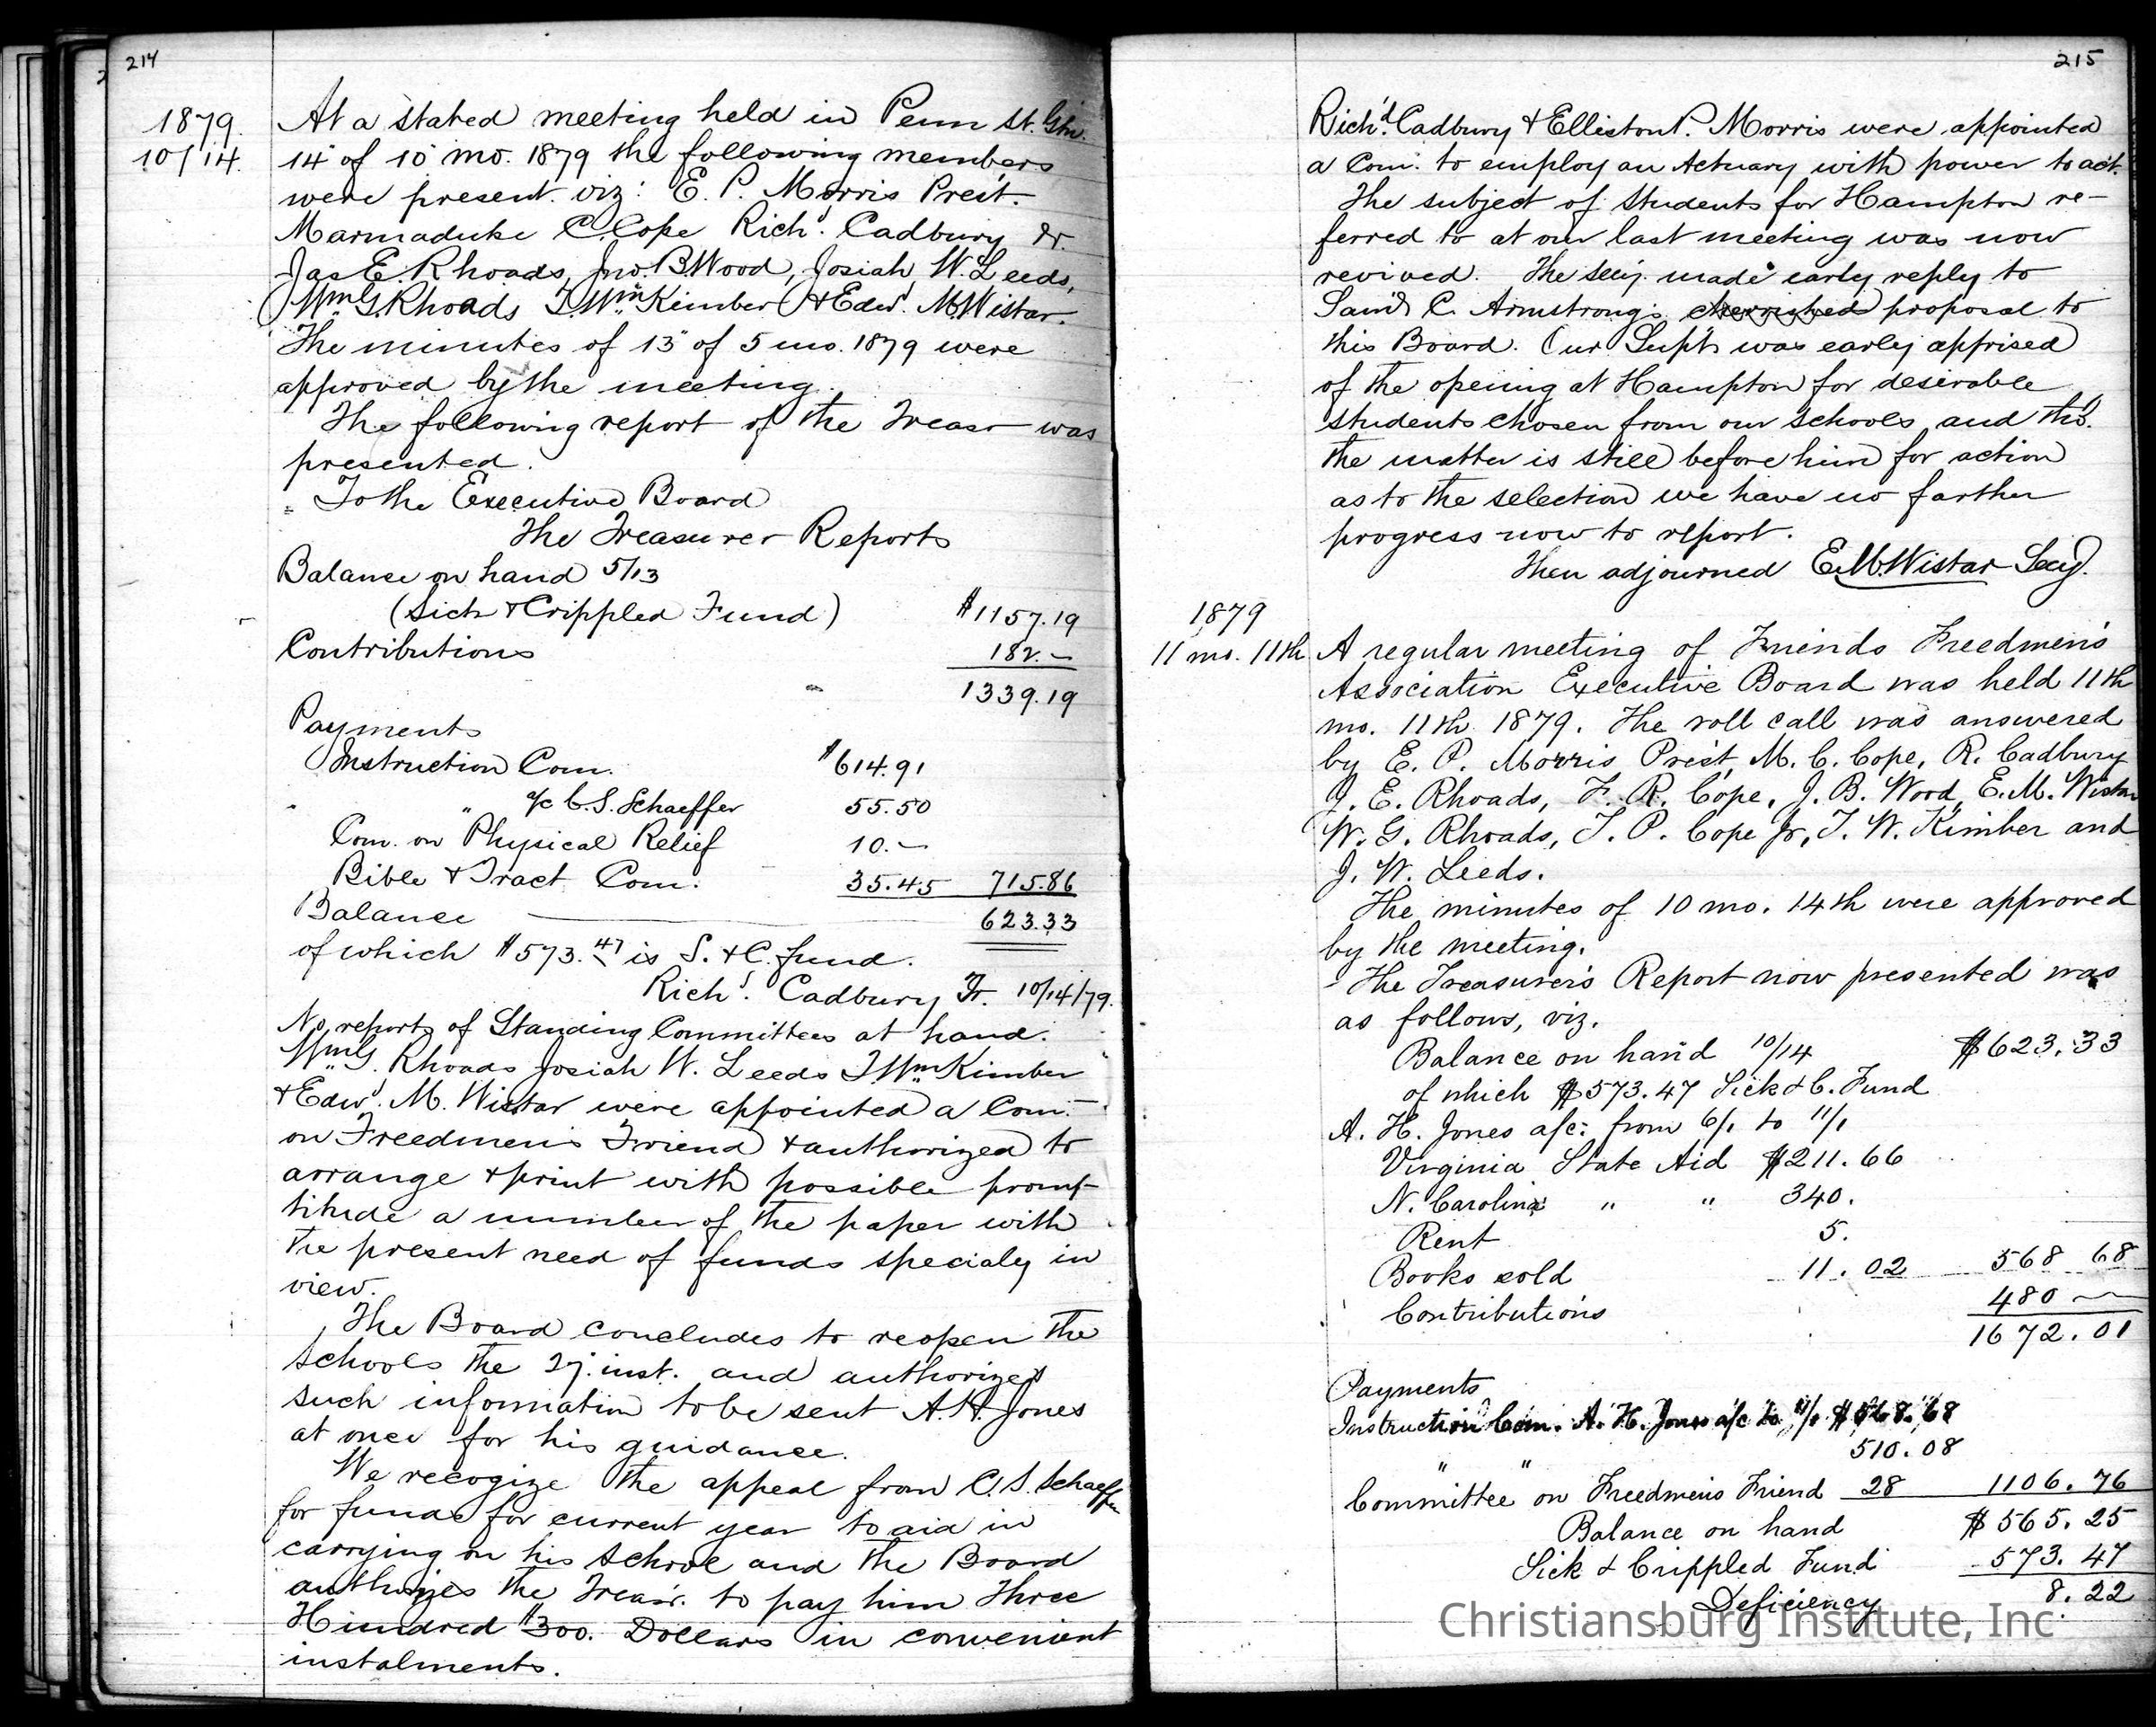 214
1879.
10/14.
At a stated meeting held in Penn St. Gtn.
14" of 10 mo. 1879 the following members
were present. viz: E. P. Morris Prest.
Marmaduke C. Cope Richd. Cadbury Tr.
Jas E. Rhoads, Jno. B. Wood, Josiah W. Leeds,
Wm G. Rhoads T. Wm Kimber & Edwd. M Wistar.
The minutes of 13" of 5 mo. 1879 were
approved by the meeting.
The following report of the Treasr was
presented.
" To the Executive Board
The Treasurer Reports
Balance on hand 5/13
(Sick & Crippled Fund) $1157.19
Contributions 182.—
1339.19
Payments
Instruction Com. $614.91
" a/c C. S. Schaeffer 55.50
Com. on Physical Relief 10.—
Bible & Tract Com. 35.45 715.86
Balance 623.33
of which $573.47 is S. & C. fund.
Richd. Cadbury Tr. 10/14/79.
No reports of Standing Committees at hand.
Wm G. Rhoads Josiah W. Leeds T Wm Kimber
& Edwd. M. Wistar were appointed a Com.
on Freedmen's Friend & authorized to
arrange & print with possible promp-
titude a number of the paper with
the present need of funds specialy in
view.
The Board concludes to reopen the
schools the 27. inst. and authorizes
such information to be sent A. H. Jones
at once for his guidance.
We recogize the appeal from C. S. Schaeffer
for funds for current year to aid in
carrying on his school and the Board
authorizes the Treasr. to pay him Three
Hundred $300. Dollars in convenient
instalments.
215
Rich'd. Cadbury & Elliston P. Morris were appointed
a Com. to employ an Actuary with power to act.
The subject of Students for Hampton re-
ferred to at our last meeting was now
revived. The Secy. made early reply to
Saml C. Armstrong's cherrished proposal to
this Board. Our Supt. was early apprised
of the opening at Hampton for desirable
students chosen from our schools and tho'.
the matter is still before him for action
as to the selection we have no farther
progress now to report.
Then adjourned E. M. Wistar Secy.
1879
11 mo. 11th
A regular meeting of Friends Freedmen's
Association Executive Board was held 11th
mo. 11th 1879. The roll call was answered
by E. P. Morris Prest, M. C. Cope, R. Cadbury
J. E. Rhoads, F. R. Cope, J. B. Wood, E. M. Wistar
W. G. Rhoads, T. P. Cope Jr, T. W. Kimber and
J. W. Leeds.
The minutes of 10 mo. 14th were approved
by the meeting.
The Treasurer's Report now presented was
as follows, viz.
Balance on hand 10/14 $623.33
of which $573.47 Sick & C. Fund
A. H. Jones a/c: from 6/1 to 11/1
Virginia State Aid $211.66
N. Carolina " " 340.
Rent 5.
Books sold 11.02 568 68
Contributions 480 —
1672.01
Payments
Instruction Com. A. H. Jones a/c to 11/1 $568.68
" " 510.08
Committee on Freedmens Friend 28 1106.76
Balance on hand $565.25
Sick & Crippled Fund 573.47
Deficiency 8.22
Christiansburg Institute, Inc